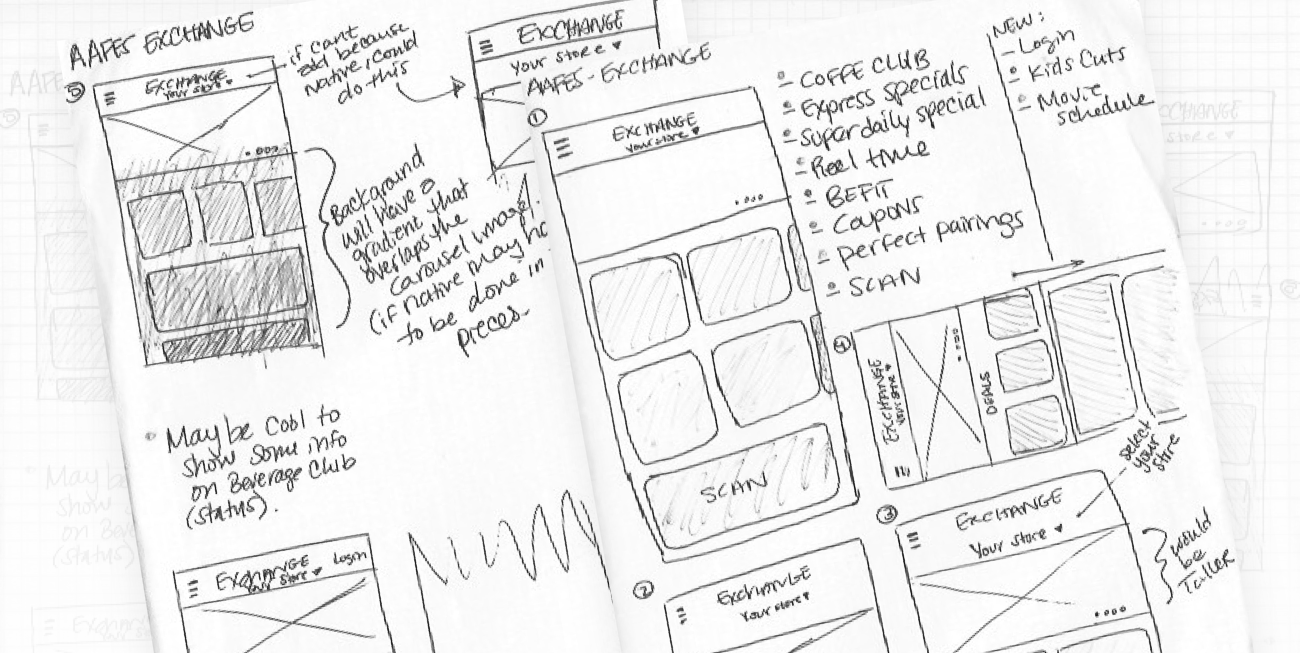 AAFES EXCHANGE
⑤
EXCHANGE
Your store ♥
if cant
add because
native, could
do this
EXCHANGE
Your store ♥
Background
will have a
gradient that
overlaps the
carousel image.
(if native may ha
to be done in
pieces.
• Maybe cool to
show some info
on Beverage Club
(status).
EXCHANGE
Your store ♥
Login
AAFES - EXCHANGE
①
EXCHANGE
Your store ♥
SCAN
- COFFE CLUB
- Express specials
- Super daily special
- Reel time
- BEFIT
- Coupons
- perfect pairings
- SCAN
NEW:
- Login
- Kids Cuts
- Movie
schedule
④
EXCHANGE
Your store ♥
DEALS
select
your
store
②
EXCHANGE
Your store ♥
③
EXCHANGE
Your store ♥
would
be
Taller